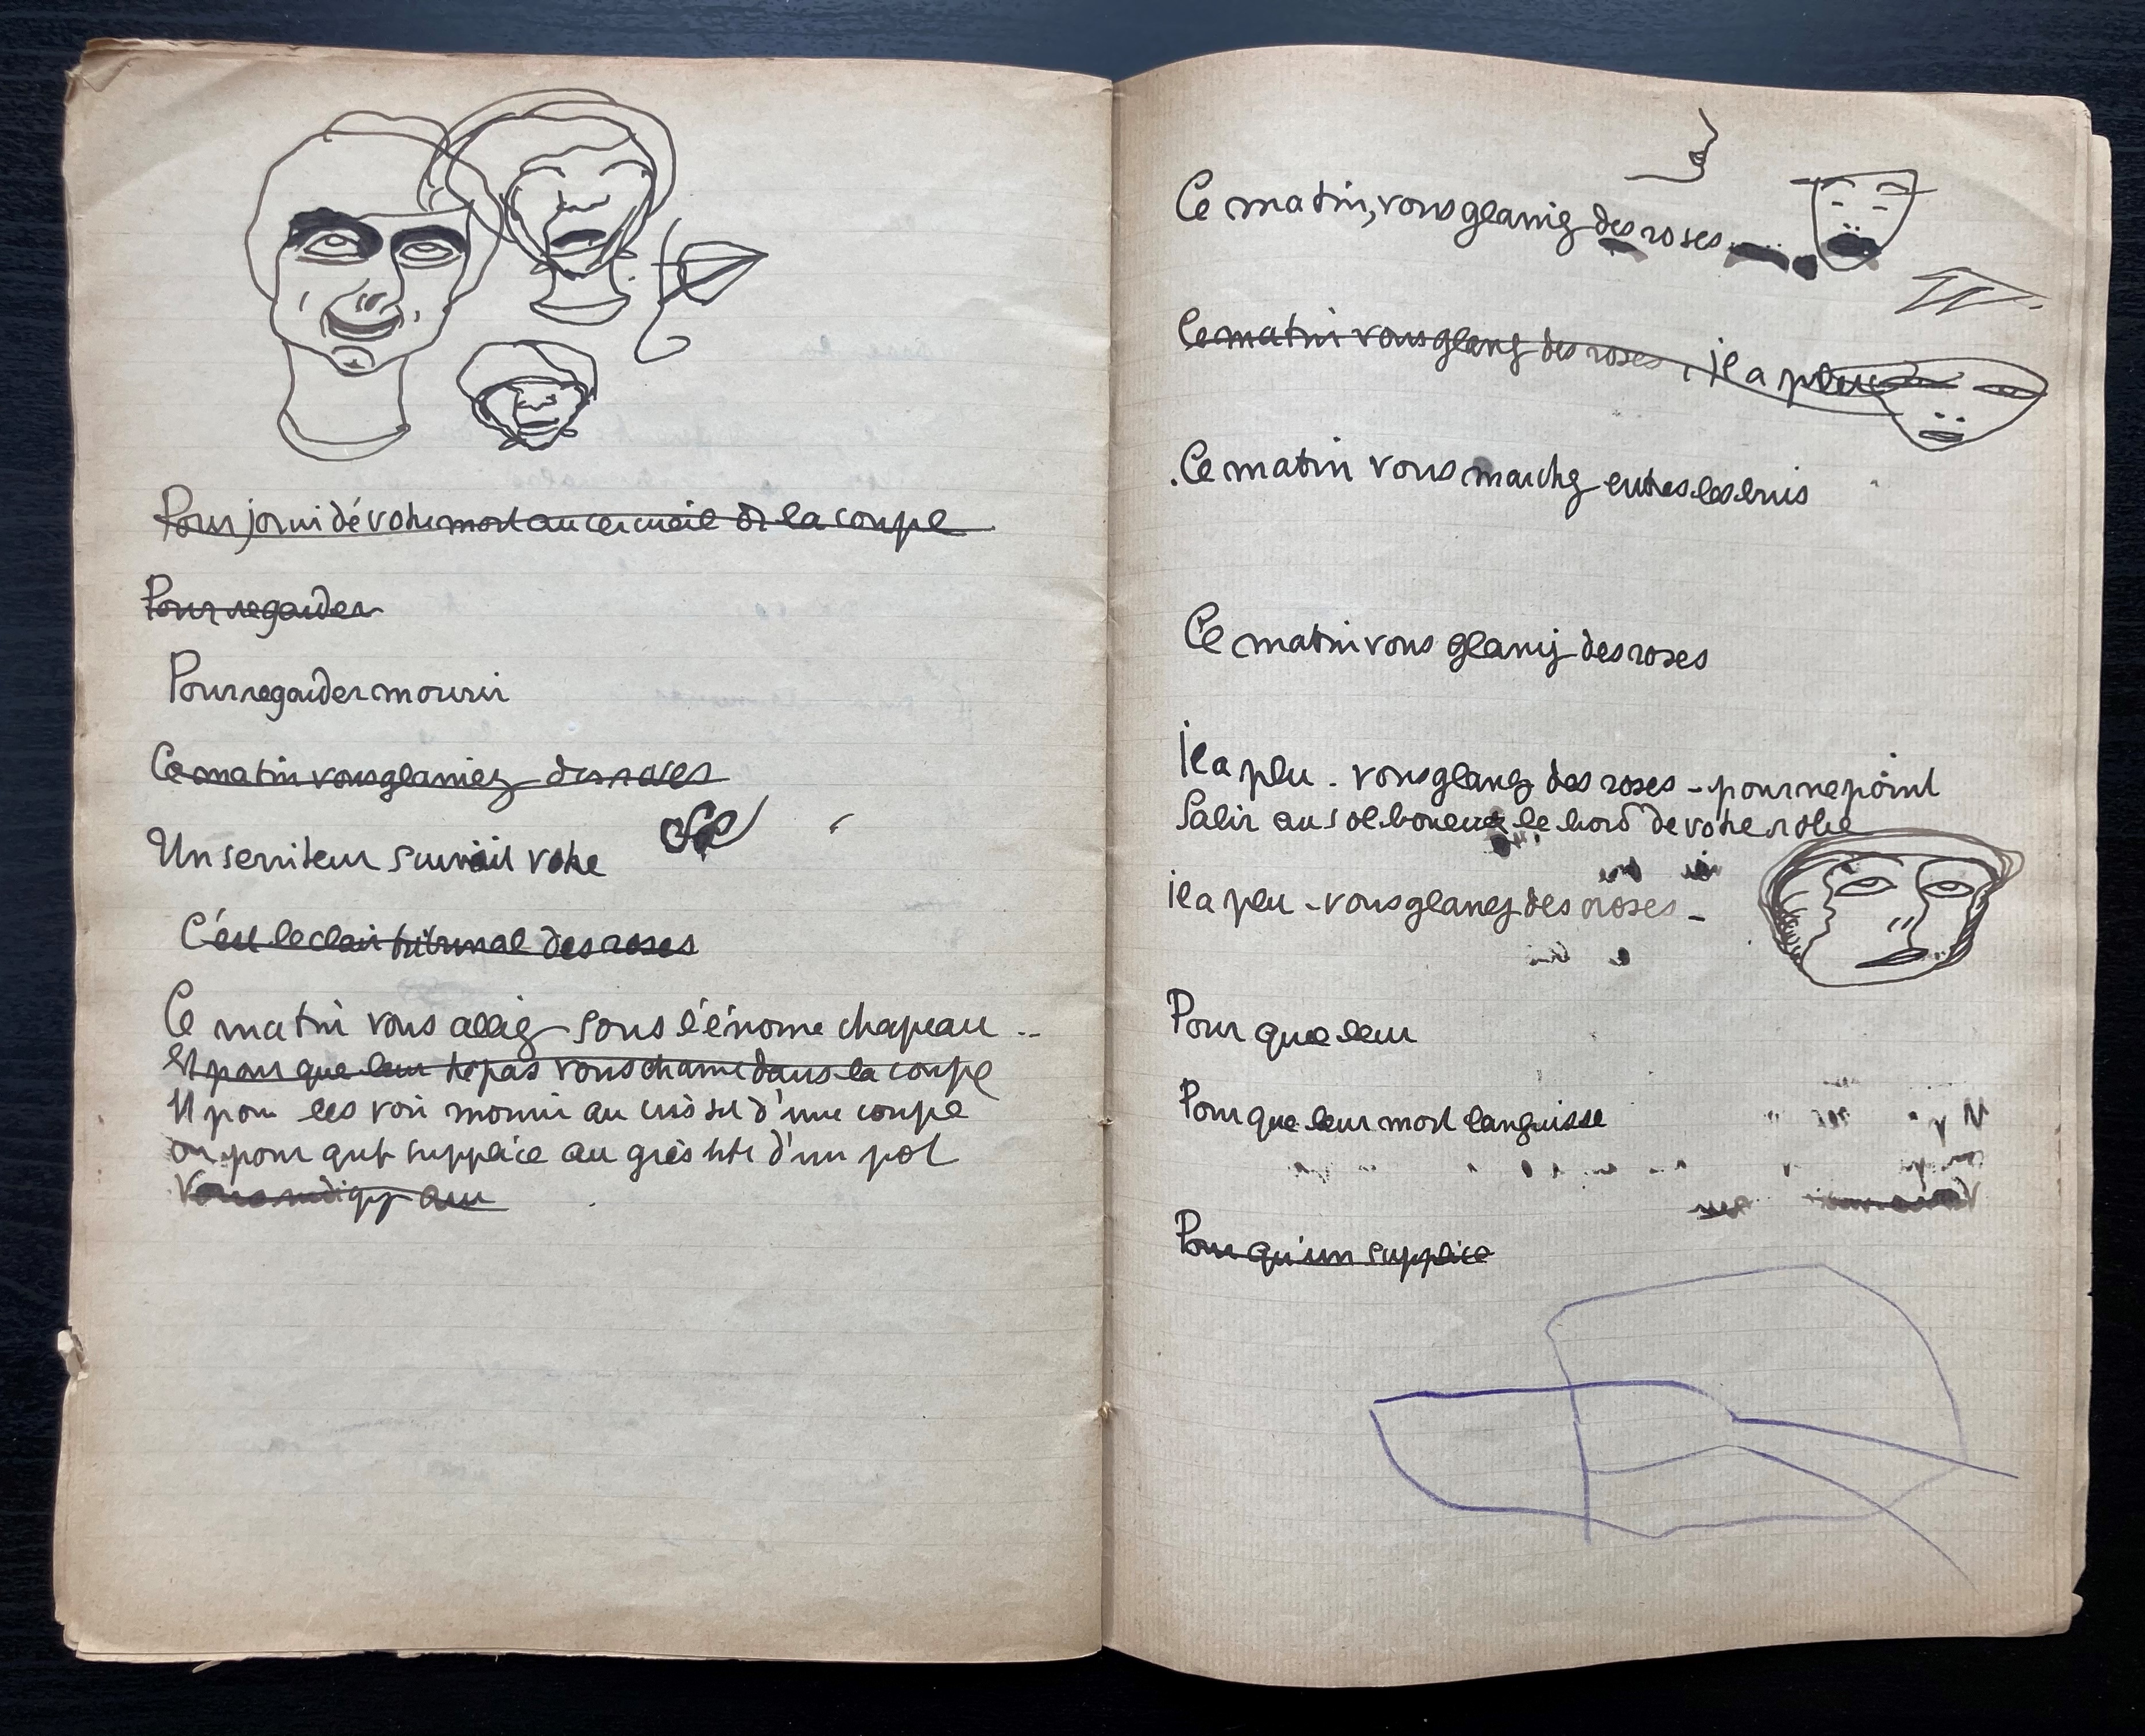 Pour jouir dé votre mort au cercueil de la coupe
Pour regarder
Pour regarder mourir
Ce matin vous glaniez des roses
Un serviteur suivait votre
C'est le clair tribunal des roses
Ce matin vous alliez sous l'énorme chapeau ..
Et pour que leur trépas vous charme dans la coupe
Et pour les voir mourir au cristal d'une coupe
ou pour qu'  supplice au grès  d'un pot
Vous
Ce matin, vous glaniez des roses
Ce matin vous glanez des roses, il a plu
Ce matin vous marchez entre les buis
Ce matin vous glaniez des roses
il a plu - vous glanez des roses - pour ne point
Salir au sol boueux le bord de votre robe
il a plu - vous glanez des roses -
Pour que leur
Pour que leur mort languisse
Pour qu'un supplice